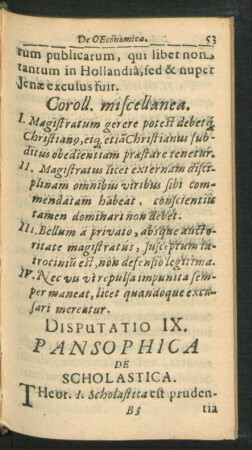 De OEconomica. 53
rum publicarum, qui liber non
tantum in Hollandiâ, sed & nuper
Jenæ excusus fuit.
Coroll. miscellanea.
I. Magistratum gerere potest debetq́;
Christiano, eiq́; etiā Christianus sub-
ditus obedientiam præstare tenetur.
II. Magistratus licet externam disci-
plinam omnibus viribus sibi com-
mendatam habeat, conscientiis
tamen dominari non debet.
III. Bellum à privato, absque aucto-
ritate magistratûs, susceptum la-
trocinium est, non defensio legitima.
IV. Nec vis vi repulsa impunita sem-
per maneat, licet quandoque excu-
sari mereatur.
DISPUTATIO IX.
PANSOPHICA
DE
SCHOLASTICA.
Theor. 1. Scholastica est pruden-
B3 tia